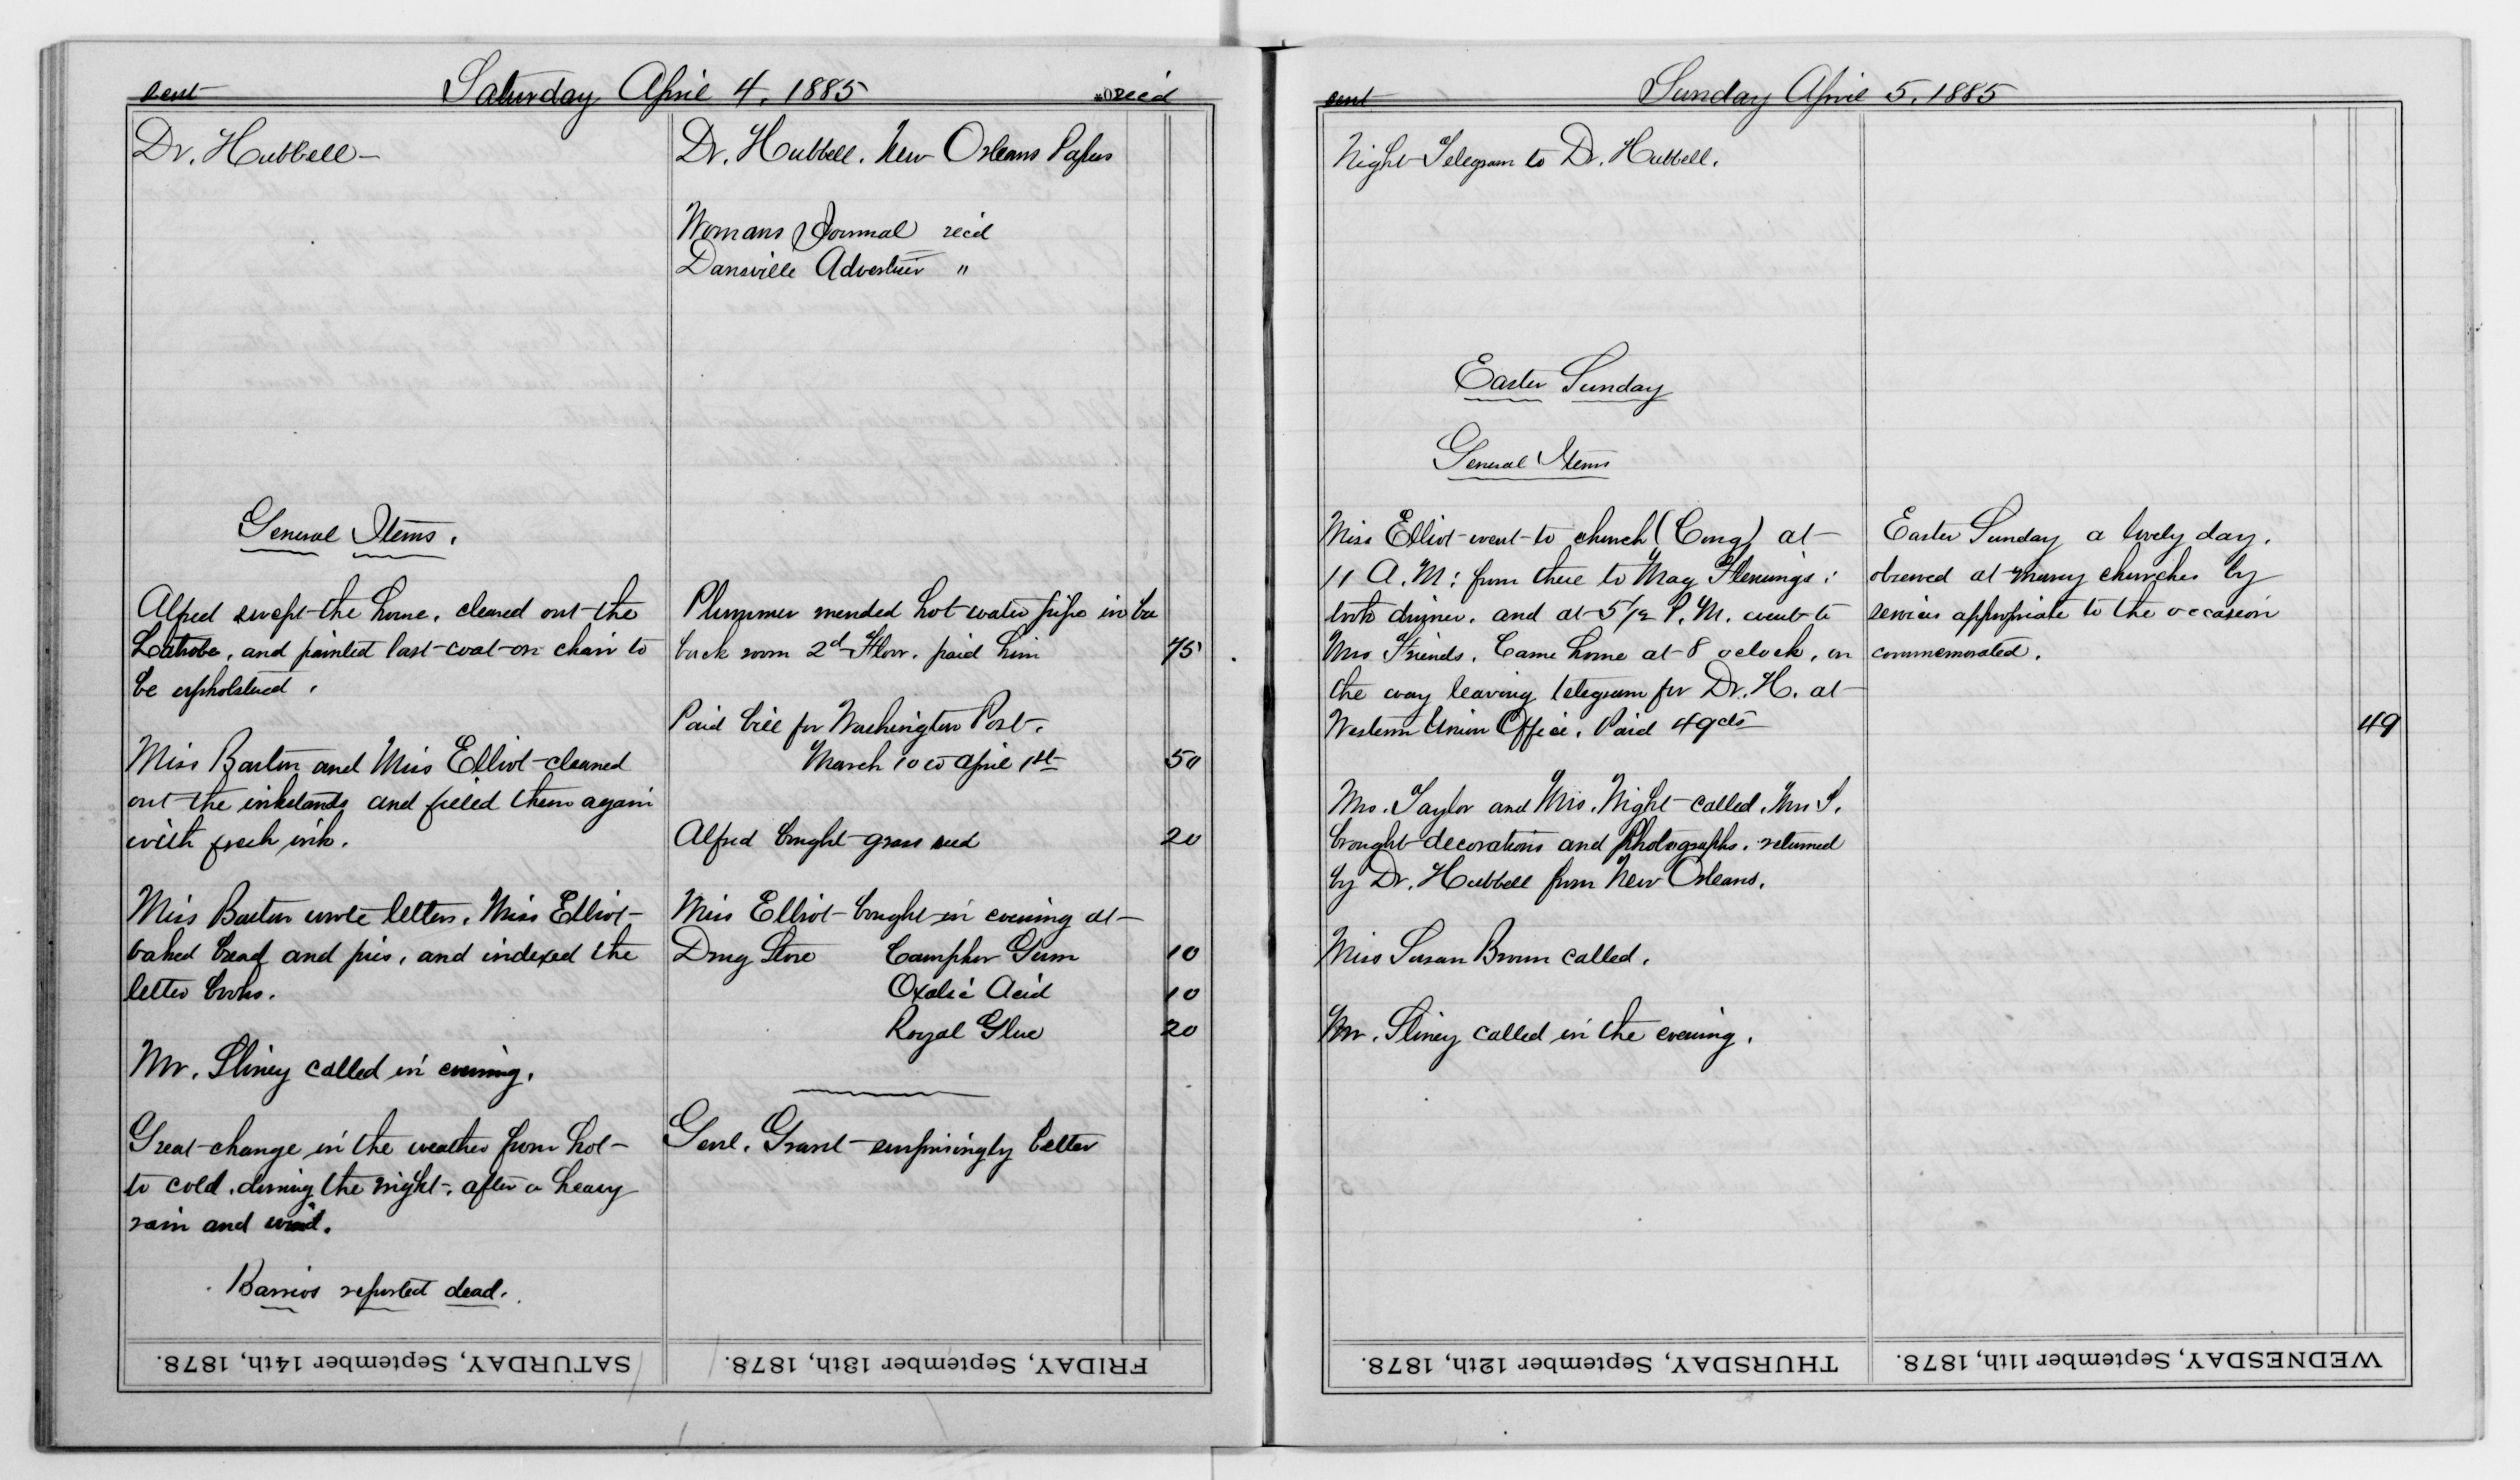 sent Saturday April 4, 1885 rec'd
Dr. Hubbell-
General Items.
Alfred swept the home, cleaned out the
Latrobe, and painted last coat on chair to
be upholstued.
Miss Barton and Miss Elliot cleaned
out the inkstands and filled them again
with fresh ink.
Miss Barton wrote letters, Miss Elliot
baked bread and pies, and indexed the
letter books.
Mr. Sliney called in evening.
Great change in the weather from hot
to cold, during the night, after a heavy
rain and wind.
Barrios reported dead.
Dr. Hubbell. New Orleans Papers
Womans Journal rec'd
Dansville Advertiser "
Plummer mended hot water pipe in
back room 2d Floor. paid him 75
Paid bill for Washington Post.
March 10 to April 1st 50
Alfred bought grass seed 20
Miss Elliot bought in evening at
Drug Store Camphor Gum 10
Oxalic Acid 10
Royal Glue 20
Genl. Grant surprisingly better
SATURDAY, September 14th, 1878.
FRIDAY, September 13th, 1878.
sent Sunday April 5, 1885
Night Telegram to Dr. Hubbell.
Easter Sunday
General Items
Miss Elliot went to church (Cong) at
11 A.M: from there to May Flemings:
took dinner, and at 5 1/2 P.M. went to
Mrs Friends. Came home at 8 oclock, on
the way leaving telegram for Dr. H. at
Western Union Office. Paid 49cts 49
Mrs. Taylor and Mrs. Night called. Mrs T.
brought decorations and Photographs, returned
by Dr. Hubbell from New Orleans.
Miss Susan Brown called.
Mr. Sliney called in the evening.
Easter Sunday a lovely day.
observed at many churches by
services appropriate to the occasion
commemorated.
THURSDAY, September 12th, 1878.
WEDNESDAY, September 11th, 1878.